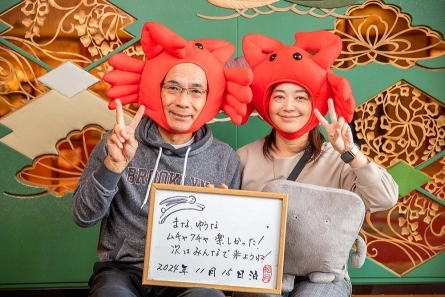 BROOKLYN
まな、ゆうな
ムチャクチャ楽しかった!
次はみんなで来ようね!
2024年 11月 15日 泊